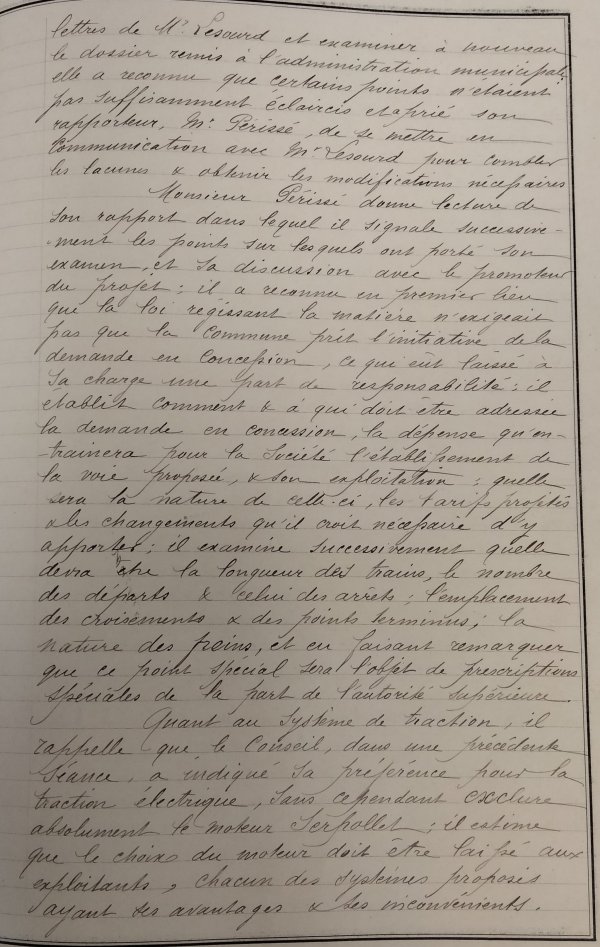 lettres de Mr Lesourd et examiner à nouveau
le dossier remis à l'administration municipale
elle a reconnu que certains points n'étaient
pas suffisamment éclaircis et a prié son
rapporteur, Mr Périssé, de se mettre en
Communication avec Mr Lesourd pour combler
les lacunes & obtenir les modifications nécessaires
Monsieur Périssé donne lecture de
son rapport dans lequel il signale successive-
-ment les points sur lesquels ont porté son
examen, et sa discussion avec le promoteur
du projet : il a reconnu en premier lieu
que la loi régissant la matière n'exigeait
pas que la Commune prît l'initiative de la
demande en Concession, ce qui eût laissé à
sa charge une part de responsabilité : il
établit comment & à qui doit être adressée
la demande en concession, la dépense qu'en-
-trainera pour la Société l'établissement de
la voie proposée, & son exploitation ; quelle
sera la nature de celle-ci, les tarifs projetés
& les changements qu'il croit nécessaire d'y
apporter ; il examine successivement quelle
devra être la longueur des trains, le nombre
des départs & celui des arrets ; l'emplacement
des croisements & des points terminus ; la
nature des freins, et en faisant remarquer
que ce point spécial sera l'objet de prescriptions
spéciales de la part de l'autorité supérieure.
Quant au système de traction, il
rappelle que le Conseil, dans une précédente
Séance, a indiqué sa préférence pour la
traction électrique, sans cependant exclure
absolument le moteur Serpollet ; il estime
que le choix du moteur doit être laissé aux
exploitants, chacun des systèmes proposés
ayant ses avantages & ses inconvénients.